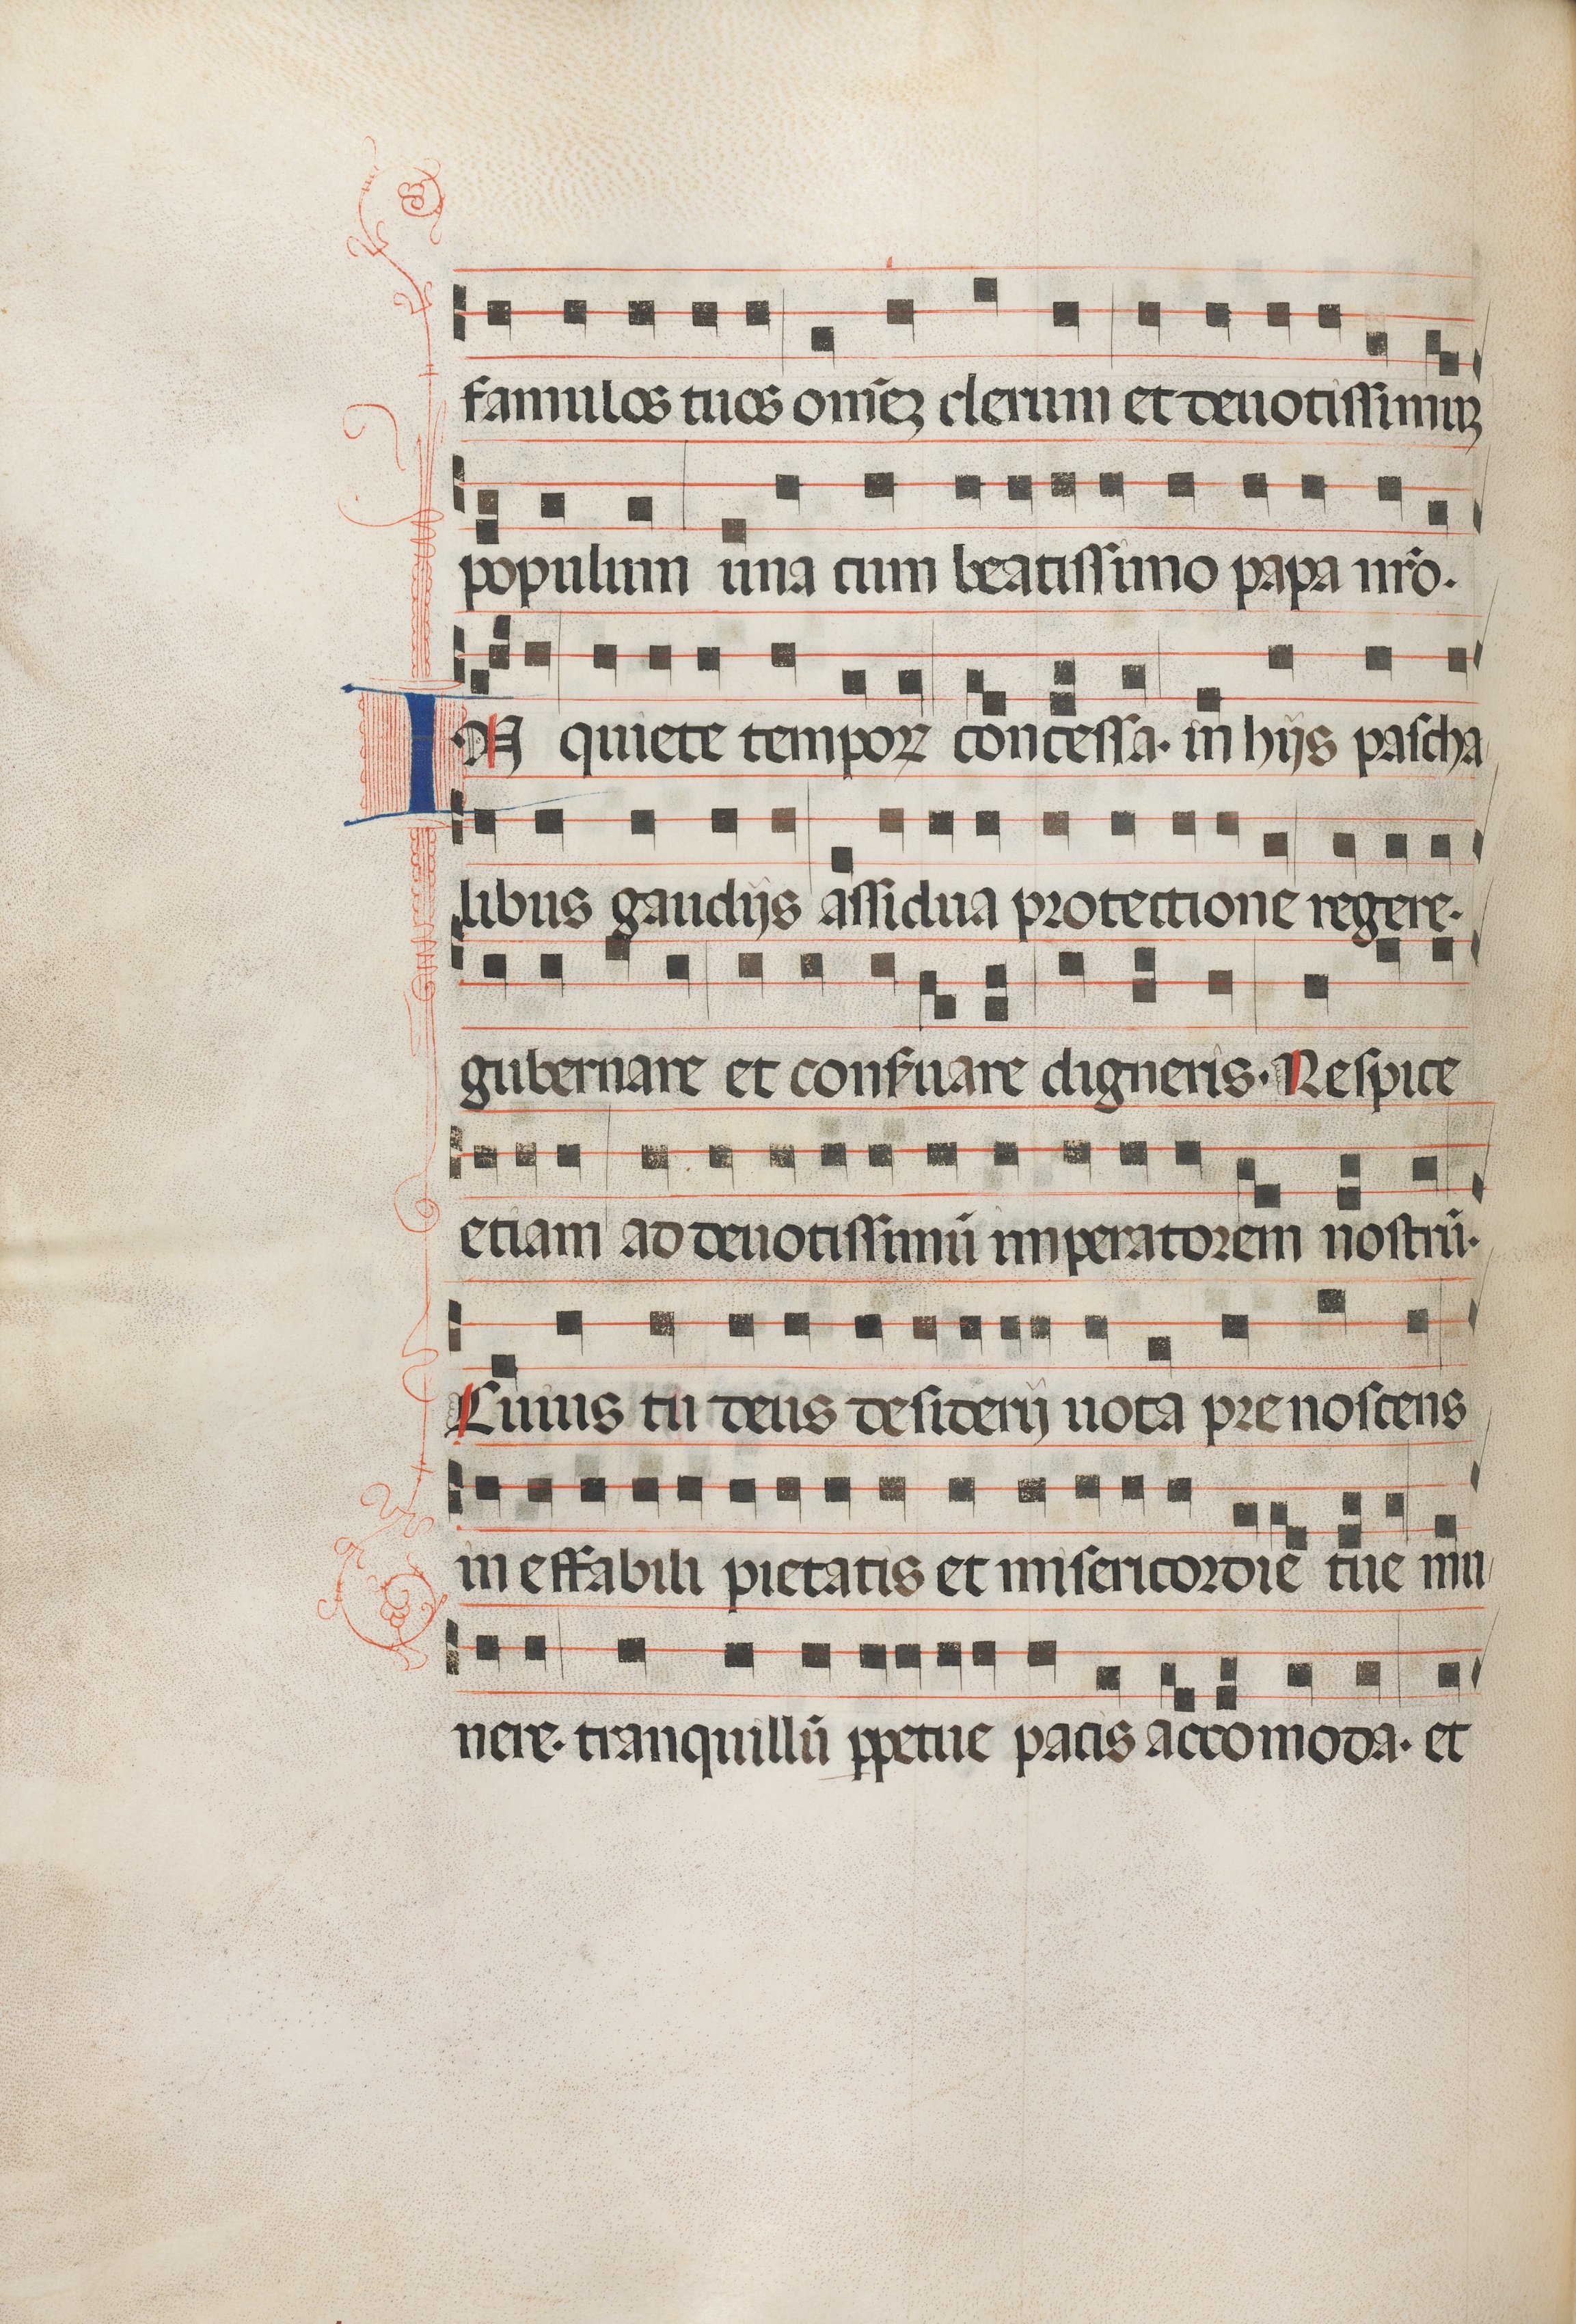 famulos tuos om̄eꝫ clerum et deuotissimuꝫ
populum una cum beatissimo papa nr̄o.
IN quiete temporꝝ concessa. in hijs pascha
libus gaudijs assidua protectione regere.
gubernare et conſ̲uare digneris. Respice
etiam ad deuotissimū imperatorem nostrū.
Cuius tu deus desiderij uota prenoscens
ineffabili pietatis et misericordie tue mu
nere. tranquillū ꝑpetue pacis accomoda. et